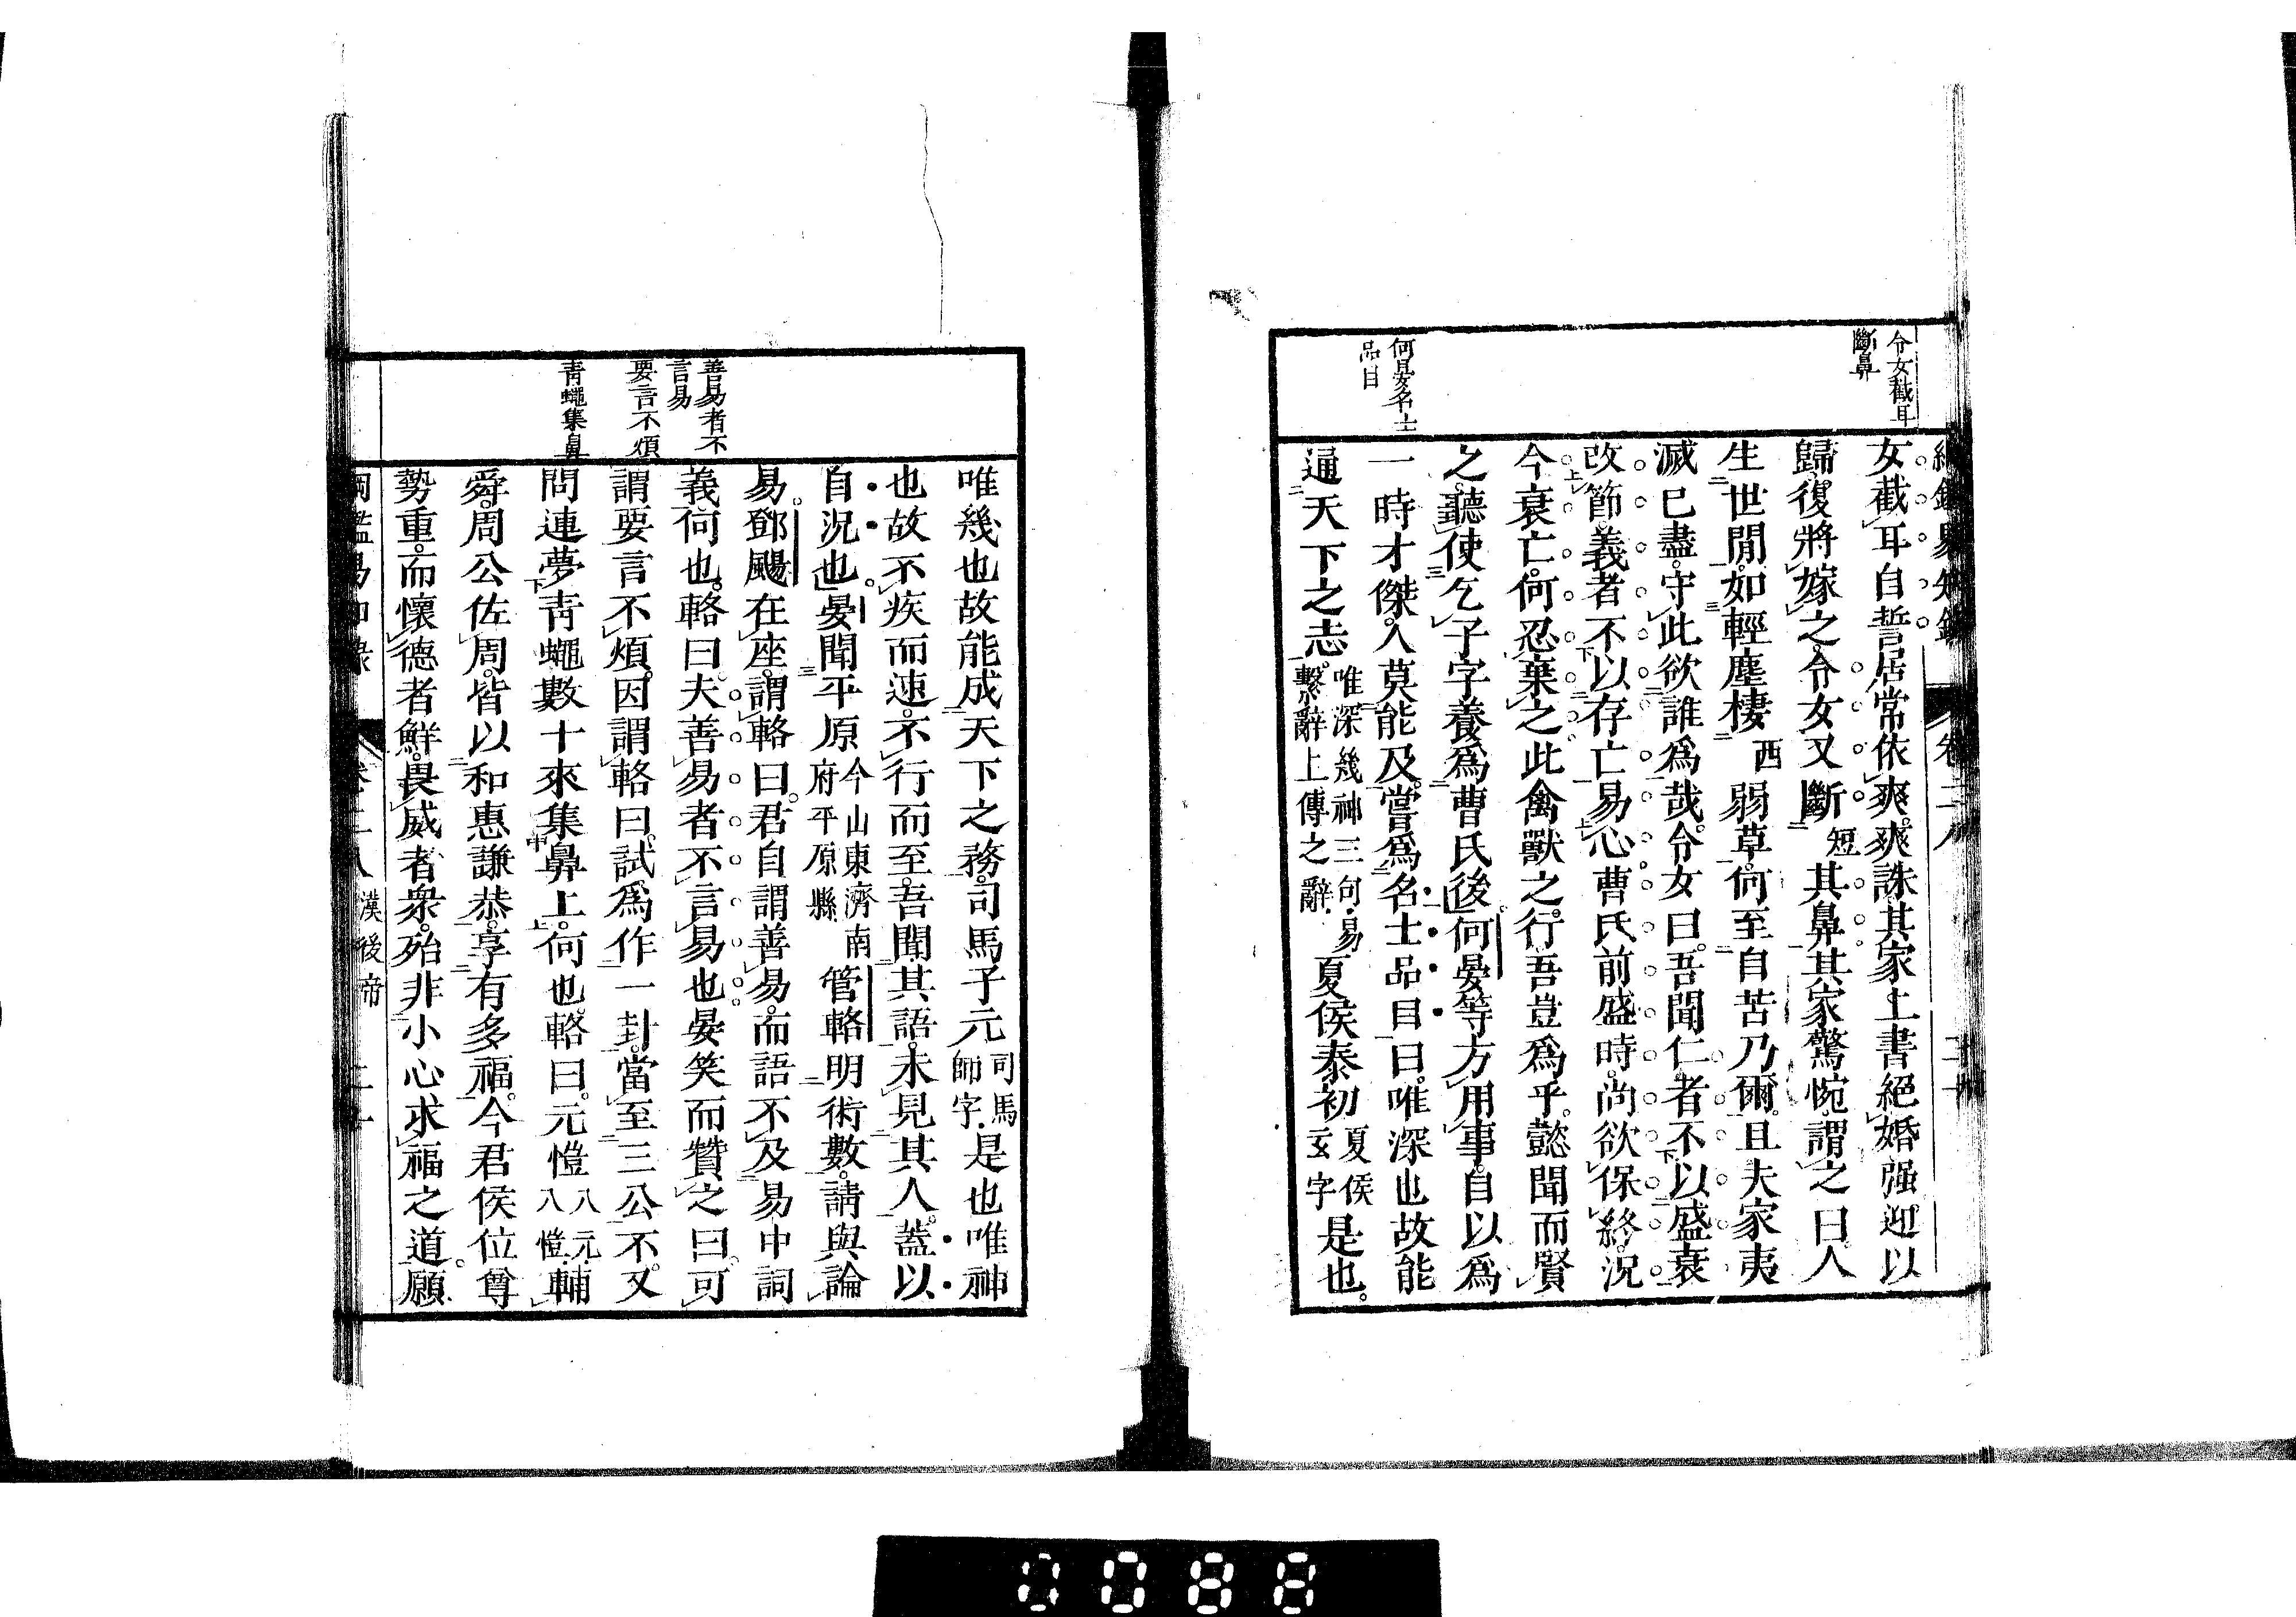 綱鑑易知錄 卷二八 二十
令女截耳
斷鼻
女截耳自誓居常依爽爽誅其家上書絕婚强迎以
歸復將嫁之令女又斷短其鼻其家驚惋謂之曰人
生世閒如輕塵棲西弱草何至自苦乃爾且夫家夷
滅已盡守此欲誰爲哉令女曰吾聞仁者不以盛衰
改節義者不以存亡易心曹氏前盛時尚欲保終況
今衰亡何忍棄之此禽獸之行吾豈爲乎懿聞而賢
之聽使乞子字養爲曹氏後何晏等方用事自以爲
一時才傑人莫能及嘗爲名士品目曰唯深也故能
何晏名士
品目
通天下之志唯深幾神三句易繫辭上傳之辭夏侯泰初夏侯玄字是也
唯幾也故能成天下之務司馬子元司馬師字是也唯神
也故不疾而速不行而至吾聞其語未見其人蓋以
自況也晏聞平原今山東濟南府平原縣管輅明術數請與論
易鄧颺在座謂輅曰君自謂善易而語不及易中詞
義何也輅曰夫善易者不言易也晏笑而贊之曰可
善易者不
言易
謂要言不煩因謂輅曰試爲作一卦當至三公不又
要言不煩
問連夢青蠅數十來集鼻上何也輅曰元愷八元八愷輔
青蠅集鼻
舜周公佐周皆以和惠謙恭享有多福今君侯位尊
勢重而懷德者鮮畏威者衆殆非小心求福之道願
綱鑑易知錄 卷二八 漢後帝 二十
0088